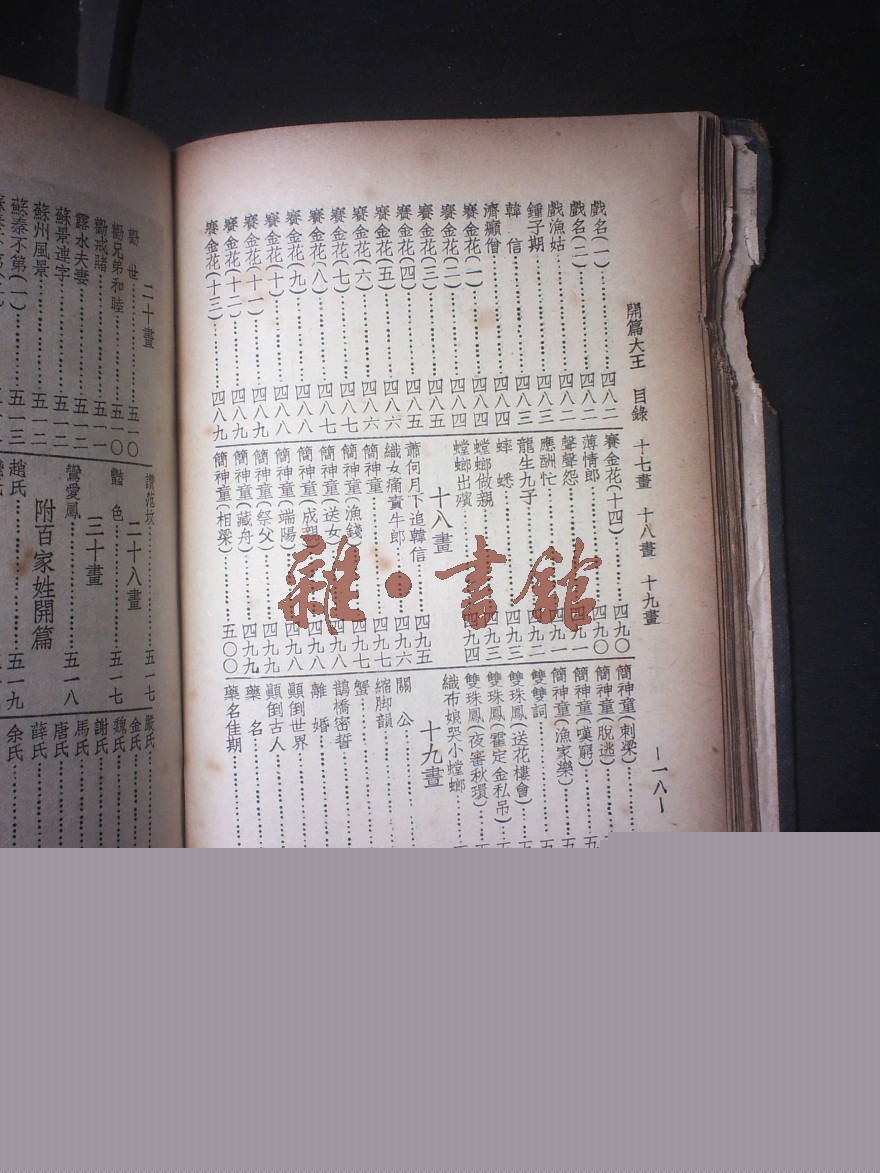 開篇大王 目錄 十七畫 十八畫 十九畫
—一八—
戲名(一)⋯⋯四八二
戲名(二)⋯⋯四八二
戲漁姑⋯⋯四八二
鍾子期⋯⋯四八三
韓信⋯⋯四八四
濟癲僧⋯⋯四八四
賽金花(一)⋯⋯四八四
賽金花(二)⋯⋯四八四
賽金花(三)⋯⋯四八五
賽金花(四)⋯⋯四八五
賽金花(五)⋯⋯四八六
賽金花(六)⋯⋯四八六
賽金花(七)⋯⋯四八七
賽金花(八)⋯⋯四八七
賽金花(九)⋯⋯四八八
賽金花(十)⋯⋯四八八
賽金花(十一)⋯⋯四八九
賽金花(十二)⋯⋯四八九
賽金花(十三)⋯⋯四八九
賽金花(十四)⋯⋯四九〇
薄情郎⋯⋯四九〇
聲聲怨⋯⋯四九一
應酬忙⋯⋯四九一
龍生九子⋯⋯四九二
蟀蟋⋯⋯四九三
螳螂做親⋯⋯四九三
螳螂出殯⋯⋯四九四
十八畫
蕭何月下追韓信⋯⋯四九五
織女痛責牛郎⋯⋯四九六
簡神童⋯⋯四九七
簡神童(漁錢)⋯⋯四九七
簡神童(送女)⋯⋯四九八
簡神童(成親)⋯⋯四九八
簡神童(端陽)⋯⋯四九八
簡神童(祭父)⋯⋯四九九
簡神童(藏舟)⋯⋯四九九
簡神童(相梁)⋯⋯五〇〇
簡神童(刺梁)⋯⋯
簡神童(脫逃)⋯⋯五
簡神童(嘆窮)⋯⋯五
簡神童(漁家樂)⋯⋯五
雙雙詞⋯⋯五
雙珠鳳(送花樓會)⋯⋯五
雙珠鳳(霍定金私吊)⋯⋯五
雙珠鳳(夜審秋環)⋯⋯五
織布娘哭小螳螂⋯⋯五
十九畫
關公⋯⋯
縮脚韻⋯⋯
蟹⋯⋯
鵲橋密誓⋯⋯
離婚⋯⋯
顚倒世界⋯⋯
顚倒古人⋯⋯
藥名⋯⋯
藥名佳期⋯⋯
二十畫
勸世⋯⋯五一〇
勸兄弟和睦⋯⋯五一〇
勸戒賭⋯⋯五一一
露水夫妻⋯⋯五一二
蘇景連字⋯⋯五一二
蘇州風景⋯⋯五一二
蘇秦不第(一)⋯⋯五一三
⋯⋯五一七
二十八畫
豔色⋯⋯五一七
三十畫
鸞愛鳳⋯⋯五一八
附百家姓開篇
趙氏⋯⋯五一九
嚴氏⋯⋯
金氏⋯⋯
魏氏⋯⋯
謝氏⋯⋯
馬氏⋯⋯
唐氏⋯⋯
薛氏⋯⋯
余氏⋯⋯
雜·書館